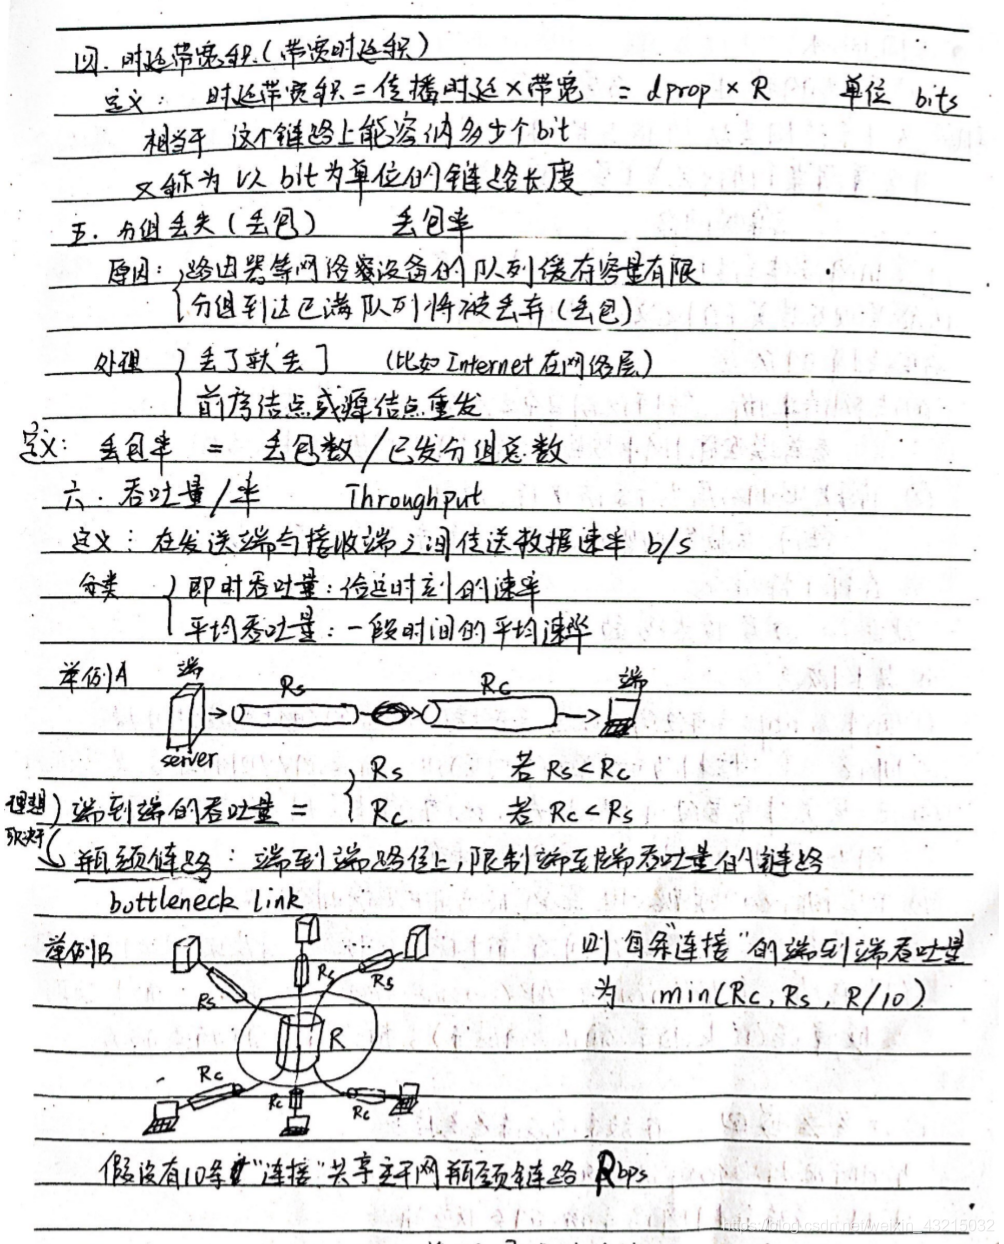 四. 时延带宽积(带宽时延积)
定义: 时延带宽积 = 传播时延 × 带宽 = dprop × R 单位 bits
相当于 这个链路上能容纳多少个bit
又称为 以 bit 为单位的链路长度
五. 分组丢失(丢包) 丢包率
原因: 路由器等网络设备的队列缓存容量有限
分组到达已满队列将被丢弃(丢包)
处理 丢了就丢了 (比如Internet在网络层)
前序结点或源结点重发
定义: 丢包率 = 丢包数/已发分组总数
六. 吞吐量/率 Throughput
定义: 在发送端与接收端之间传送数据速率 b/s
分类 即时吞吐量: 给定时刻的速率
平均吞吐量: 一段时间的平均速率
举例A 端 Rs Rc 端
server
理想 端到端的吞吐量 = Rs 若 Rs<Rc
Rc 若 Rc<Rs
取决于 瓶颈链路: 端到端路径上,限制端到端吞吐量的链路
bottleneck link
举例B Rs Rs Rs 则 每条"连接"的端到端吞吐量
为 min(Rc, Rs, R/10)
R
Rc Rc Rc
假设有10条"连接"共享主干网瓶颈链路 Rbps
https://blog.csdn.net/weixin_43215032